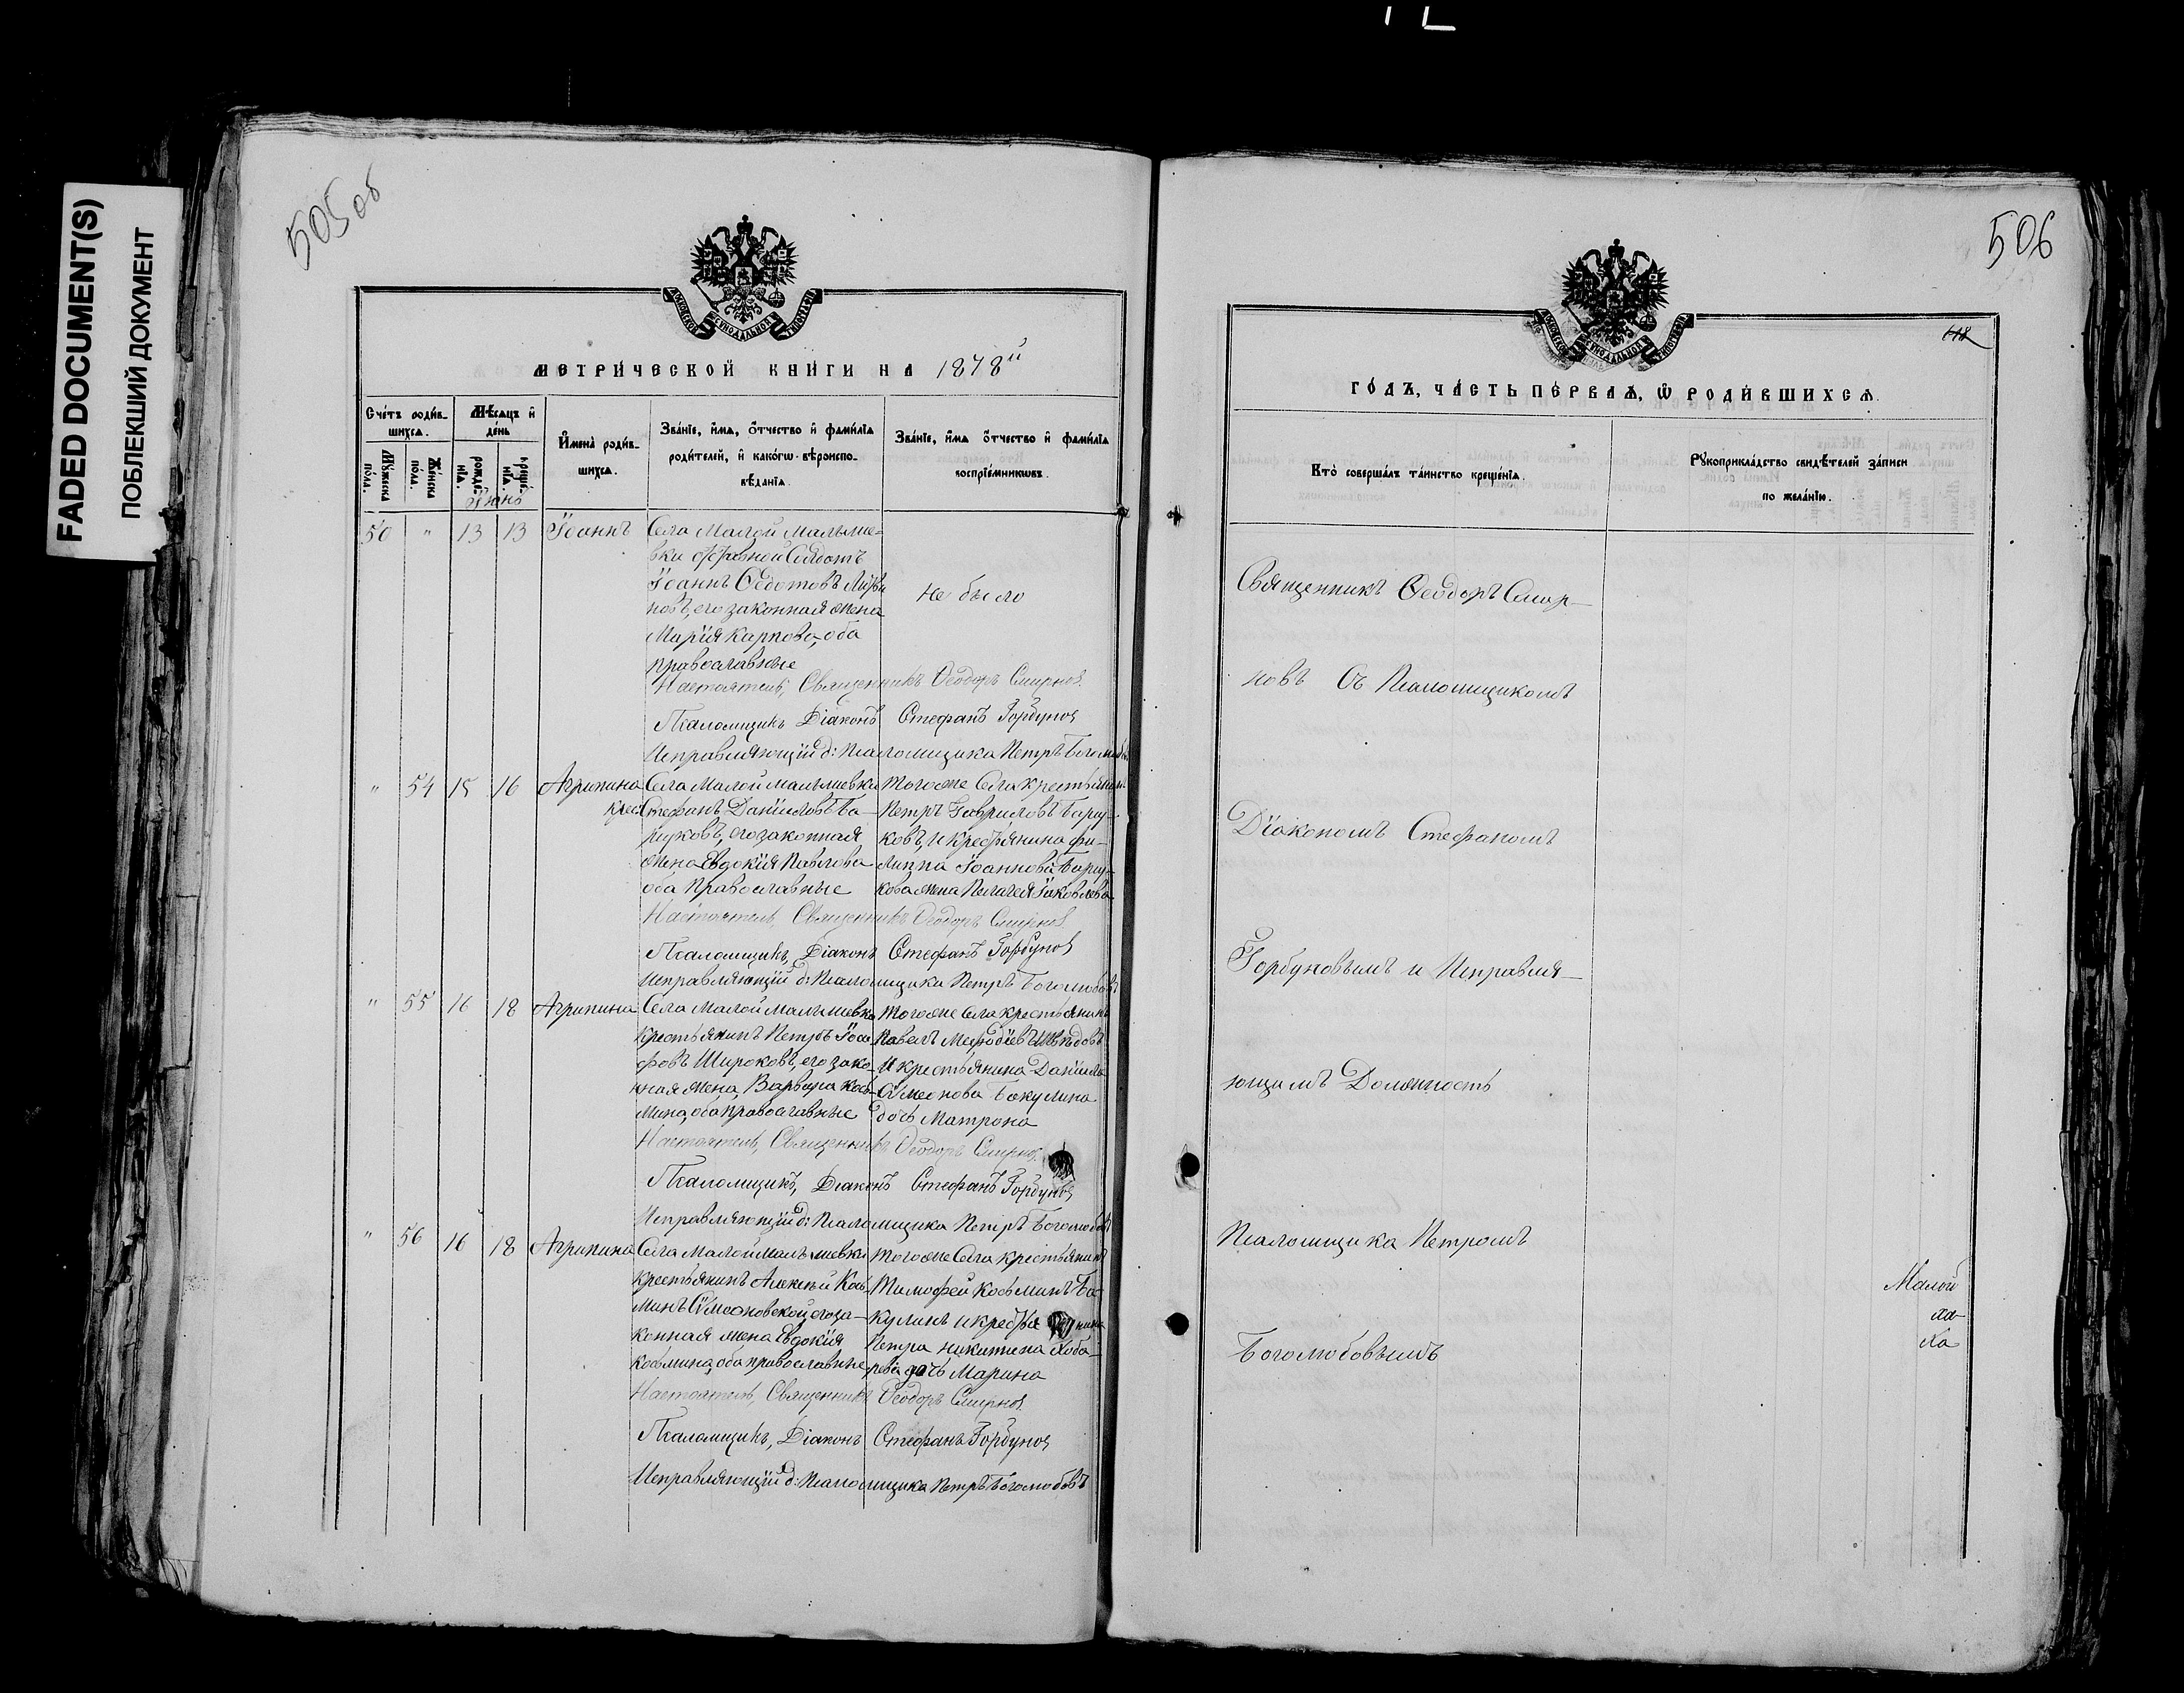 FADED DOCUMENT(S)
ПОБЛЕКШИЙ ДОКУМЕНТ
505 об
МЕТРИЧЕСКОЙ КНИГИ НА 1878й
Счетъ родившихся.
Мужеска пола.
Женска пола.
Мѣсяцъ и день
рожденія.
крещенія.
Імена родившихся.
Званіе, имя, отчество и фамилія родителей, и какогω вѣроисповѣданія.
Званіе, имя отчество и фамилія воспріемниковъ.
Іюнь
50 " 13 13 Іоаннъ
Села Малой Малыше-
вки
Іоаннъ Ѳедотовъ
новъ, его законная жена
Марія Карпова, оба
православные
не было
Настоятель, Священникъ Ѳеодоръ Смирновъ
Псаломщикъ Діаконъ Стефанъ Горбуновъ
Исправляющій д: Псаломщика Петръ Боголюбовъ
" 54 15 16 Агрипина
Села Малой Малышевки
крес Стефанъ Даніиловъ Ба-
рцуковъ, его законная
жена Евдокія Павлова
оба православные
тогоже Села крестьянинъ
Петръ Гавриловъ Барцу-
ковъ, и крестьянина Фи-
липпа Іоаннова Барцу-
кова жена Пелагея Іаковлева
Настоятель, Священникъ Ѳеодоръ Смирновъ
Псаломщикъ, Діаконъ Стефанъ Горбуновъ
Исправляющій д: Псаломщика Петръ Боголюбовъ
" 55 16 18 Агрипина
Села Малой Малышевки
крестьянинъ Петръ Іоси-
фовъ Широковъ, его зако-
нная жена, Варвара Кось-
мина, оба православные
тогоже Села крестьянинъ
Павелъ Меѳодіевъ Шведовъ
и крестьянина Даніила
Сѵмеонова Бакулина
дочь Матрона
Настоятель, Священникъ Ѳеодоръ Смирновъ
Псаломщикъ, Діаконъ Стефанъ Горбуновъ
Исправляющій д: Псаломщика Петръ Боголюбовъ
" 56 16 18 Агрипина
Села Малой Малышевки
крестьянинъ Алексѣй Кось-
минъ Сѵмеоновской, его за-
конная жена Евдокія
Косьмина, оба православные
тогоже Села крестьянинъ
Тимофей Косьминъ Ба-
кулинъ и крестья
Петра Никитина Хоба-
рева дочь Марина
Настоятель, Священникъ Ѳеодоръ Смирновъ
Псаломщикъ, Діаконъ Стефанъ Горбуновъ
Исправляющій д: Псаломщика Петръ Боголюбовъ
506
618
ГОДЪ, ЧАСТЬ ПЕРВАЯ, Ѿ РОДИВШИХСЯ.
Кто совершалъ таинство крещенія.
Рукоприкладство свидѣтелей записи по желанію.
Священникъ Ѳеодоръ Смир-
новъ Съ Псаломщикомъ
Діакономъ Стефаномъ
Горбуновымъ и Исправля-
ющимъ Должность
Псаломщика Петромъ
Боголюбовымъ
Малой
ха